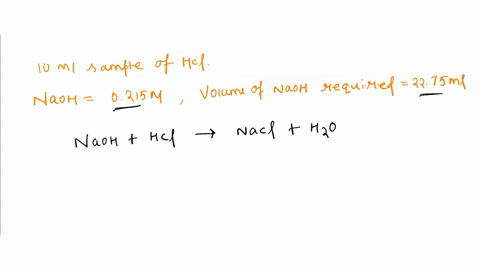 10 ml sample of Hcl.
NaOH = 0.215M , Volume of NaOH required = 22.75ml
NaOH + HCl → Nacl + H₂O